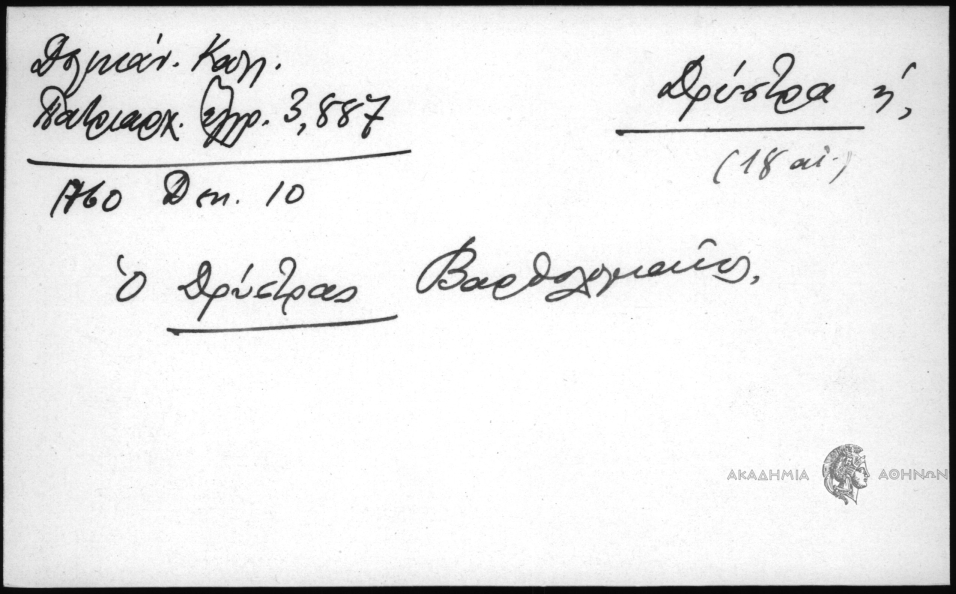 Δελικάν. Καλ.
Πατριαρχ. ἔγγρ. 3,887
1760 Δεκ. 10
Δρύστρα ἡ,
(18 αἰ.)
Ὁ Δρύστρας Βαρθολομαῖος,
ΑΚΑΔΗΜΙΑ ΑΘΗΝΩΝ